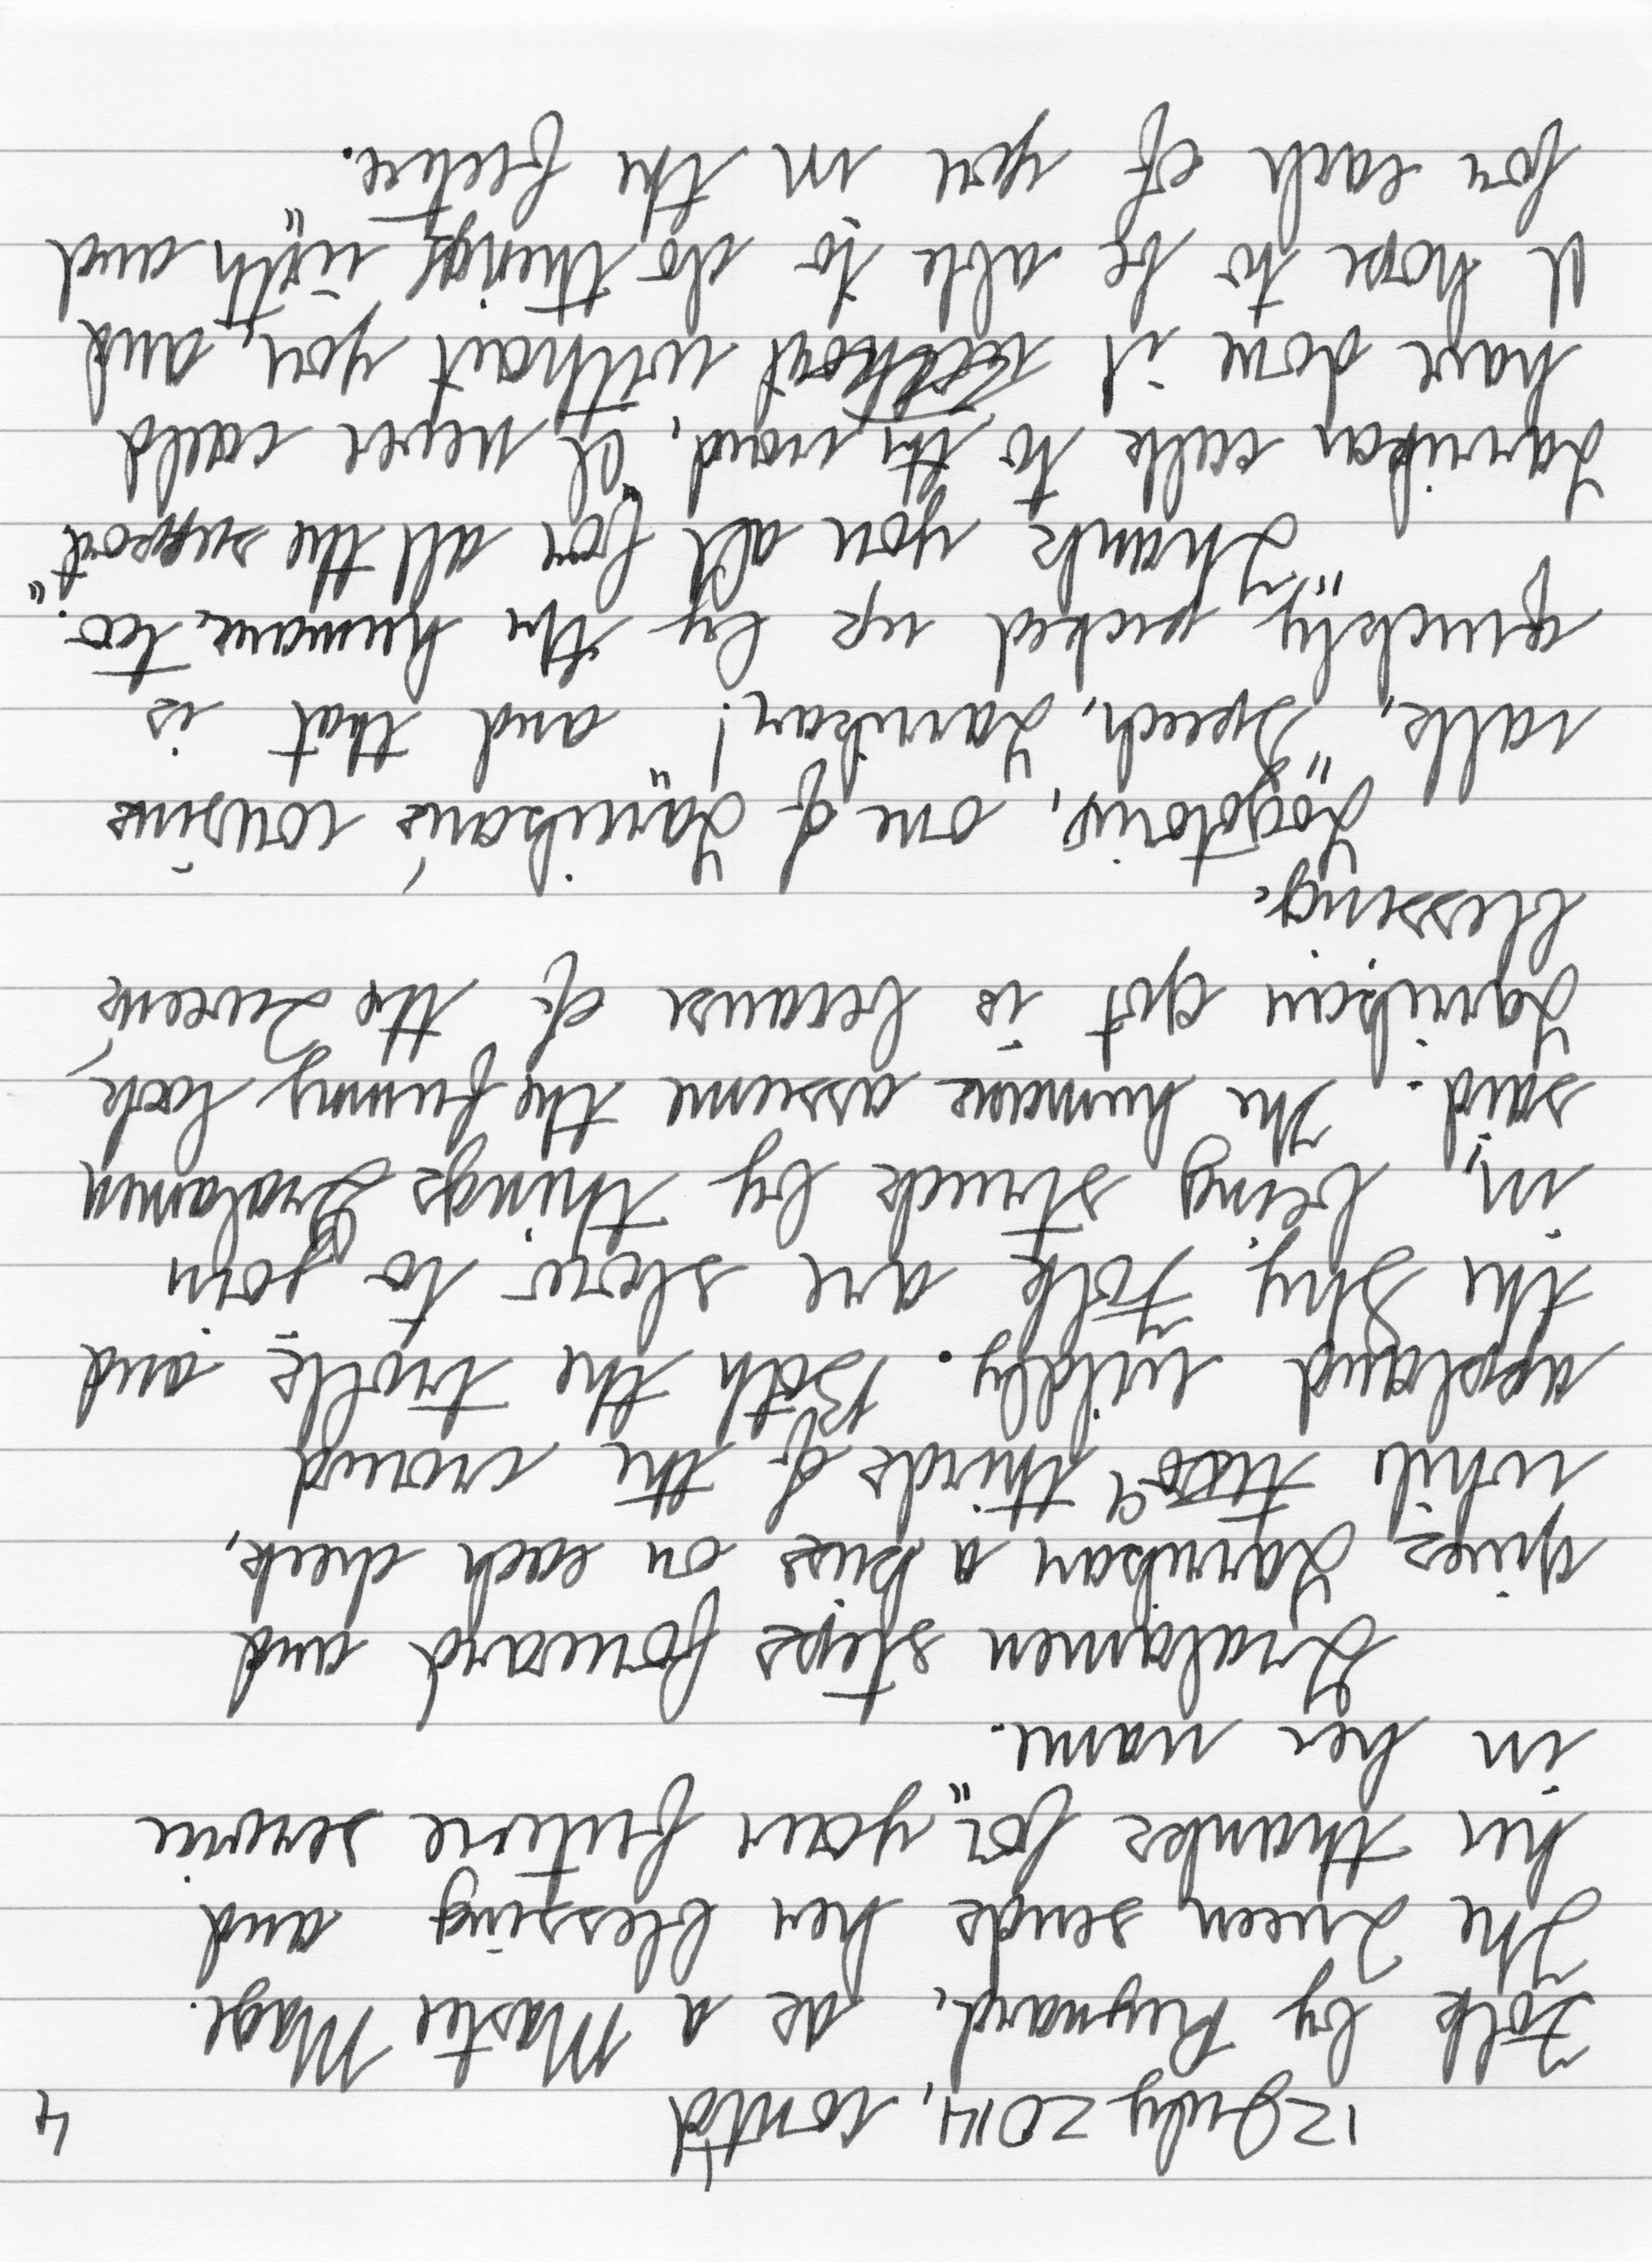 12 July 2014, cont'd 4
Folk by Reynard, as a Master Mage.
The Queen sends her blessing and
her thanks for your future service
in her name."
Gralamen steps forward and
gives Larrikan a kiss on each cheek,
while two thirds of the crowd
applaud wildly. Both the trolls and
the Shy Folk are slow to join
in, being struck by things Gralamen
said. The humans assume the funny look
Larrikan got is because of the Queen's
blessing.
Logotoris, one of Larrikan's cousins
calls, "Speech, Larrikan!" and that is
quickly picked up by the humans, too.
"Thank you all for all the support"
Larrikan calls to the crowd, "I never could
have done it without you, and
I hope to be able to do things with and
for each of you in the future."